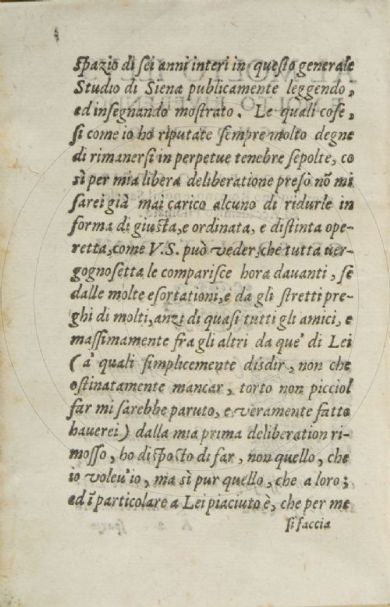 spazio di sei anni interi in questo generale
Studio di Siena publicamente leggendo,
ed insegnando mostrato. Le quali cose,
si come io hò riputate sempre molto degne
di rimanersi in perpetue tenebre sepolte, co
sì per mia libera deliberatione preso nõ mi
sarei già mai carico alcuno di ridurle in
forma di giusta, e ordinata, e distinta ope-
retta, come V.S. può veder, che tutta ver-
gognosetta le comparisce hora davanti, se
dalle molte esortationi, e da gli stretti pre-
ghi di molti, anzi di quasi tutti gli amici, e
massimamente fra gli altri da que' di Lei
(a' quali simplicemente disdir, non che
ostinatamente mancar, torto non picciol
far mi sarebbe paruto, e veramente fatto
haverei) dalla mia prima deliberation ri-
mosso, ho disposto di far, non quello, che
io volev'io, ma sì pur quello, che a loro;
ed ĩ particolare a Lei piaciuto è, che per me
si faccia